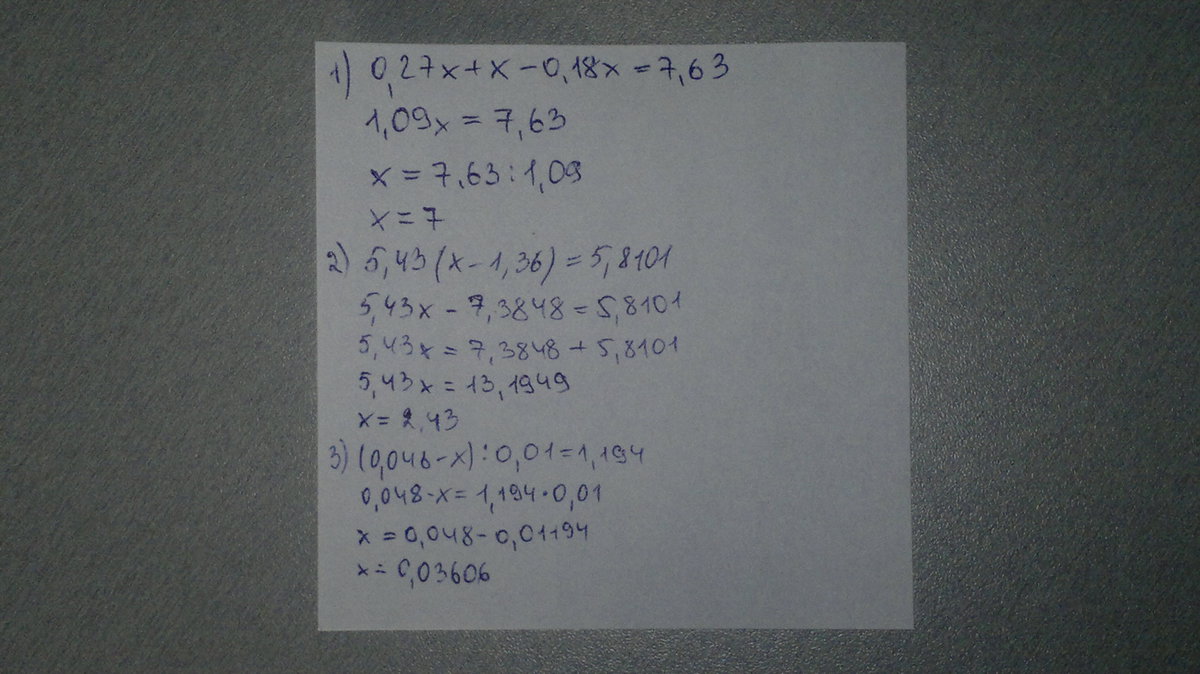 1) 0,27x+x-0,18x=7,63
1,09x=7,63
x=7,63:1,09
x=7
2) 5,43(x-1,36)=5,8101
5,43x-7,3848=5,8101
5,43x=7,3848+5,8101
5,43x=13,1949
x=2,43
3) (0,046-x):0,01=1,194
0,048-x=1,194·0,01
x=0,048-0,01194
x=0,03606